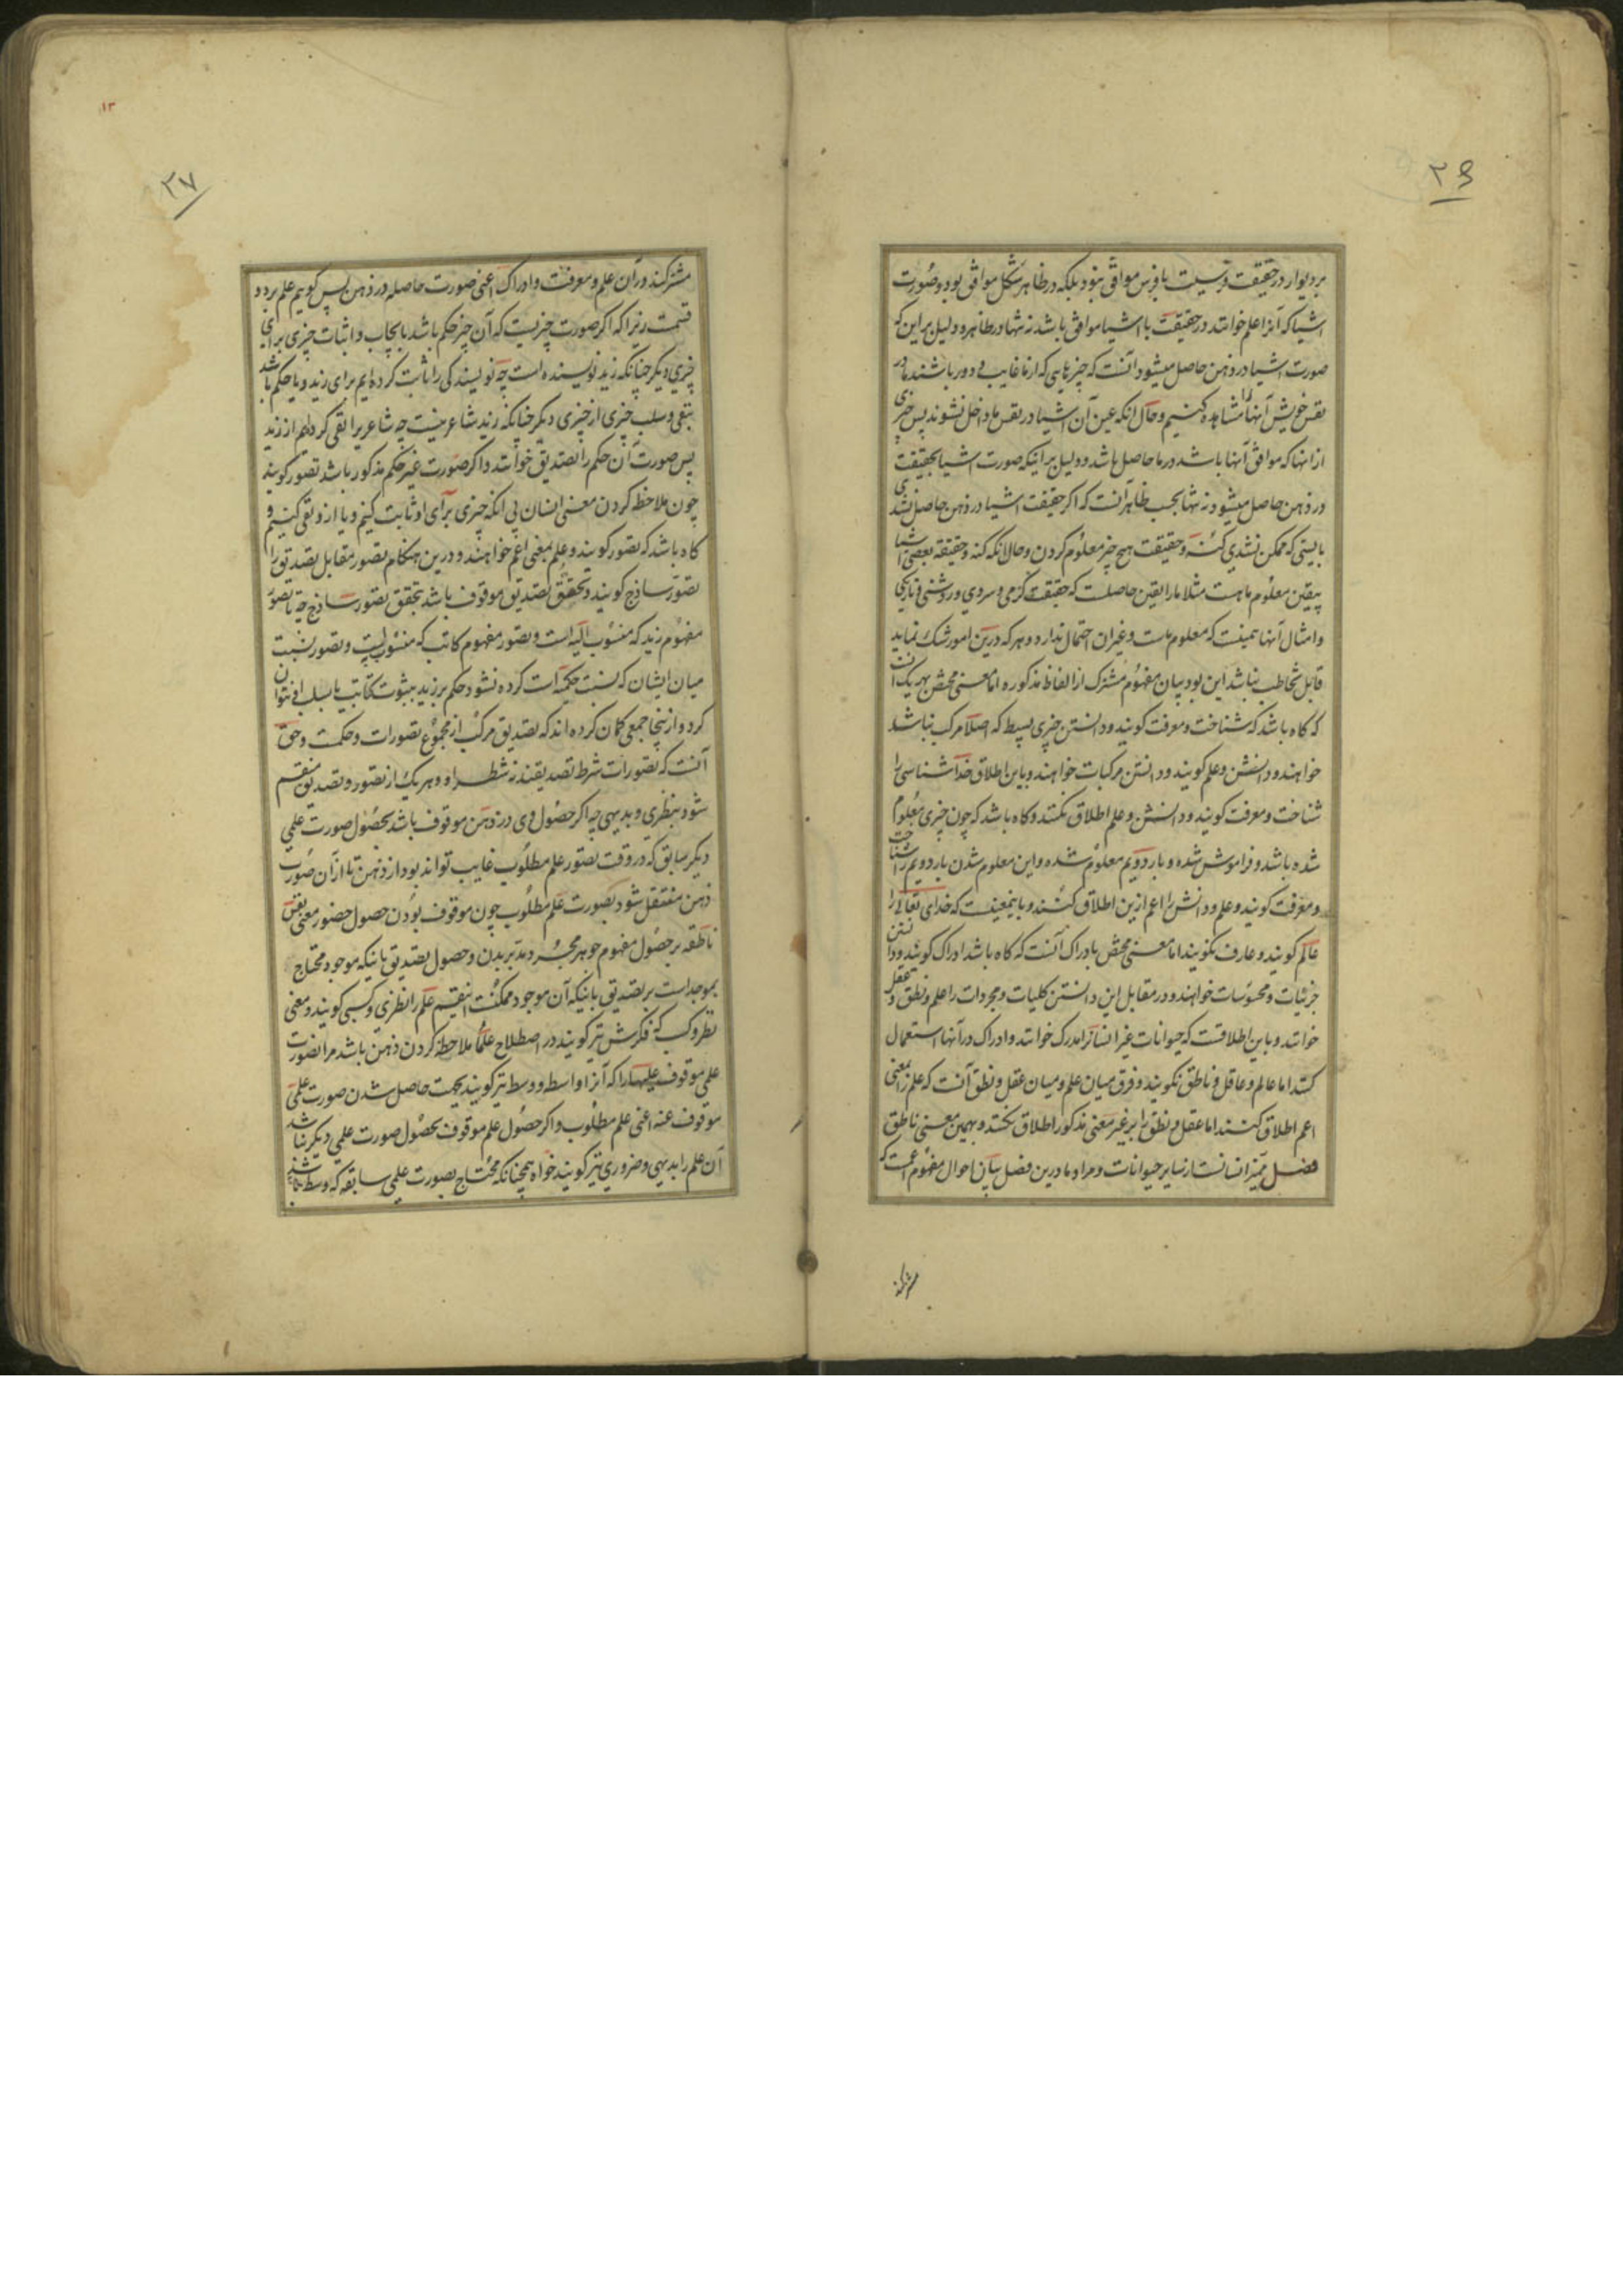 ۲۶
بر دیوار در حقیقت فرسیت با فرس موافق نبود بلکه در ظاهر شکل موافق بود و صورت
اشیا که آنرا علم خوانند در حقیقت با اشیا موافق باشد نه تنها در ظاهر و دلیل بر این که
صورت اشیا در ذهن حاصل میشود آنست که چیزهایی که از ما غایب و دور باشند ما در
نفس خویش آنها را مشاهده کنیم و حال آنکه عین آن اشیا در نفس ما داخل نشوند پس چیزی
از انها که موافق آنها باشد در ما حاصل باشد و دلیل بر اینکه صورت اشیا بحقیقت
در ذهن حاصل میشود نه تنها بحسب ظاهر آنست که اگر حقیقت اشیا در ذهن حاصل نشدی
بایستی که ممکن نشدی کنه و حقیقت هیچ چیز معلوم کردن و حال آنکه کنه و حقیقة بعضی اشیا
بیقین معلوم ما هست مثلا ما را یقین حاصلست که حقیقت گرمی و سردی و روشنی و تاریکی
و امثال آنها همینست که معلوم ماست و غیر ان احتمال ندارد و هر که درین امور شک نماید
قابل تخاطب نباشد این بود بیان مفهوم مشترک از الفاظ مذکوره اما معنی مختص بهر یک آنست
که گاه باشد که شناخت و معرفت گویند و دانستن چیزی بسیط که اصلا مرکب نباشد
خواهند و دانش و علم گویند و دانستن مرکبات خواهند و باین اطلاق خدا شناسی را
شناخت و معرفت گویند و دانش و علم اطلاق نکنند و گاه باشد که چون چیزی معلوم
شده باشد و فراموش شده و بار دویم معلوم شده و این معلوم شدن بار دویم را شناخت
و معرفت گویند و علم و دانش را اعم ازین اطلاق کنند و باینمعنیست که خدای تعالی را
عالم گویند و عارف نگویند اما معنی مختص بادراک آنست که گاه باشد ادراک گویند و دانستن
جزئیات و محسوسات خواهند و در مقابل این دانستن کلیات و مجردات را علم و نطق و عقل
خوانند و باین اطلاقست که حیوانات غیر انسانرا مدرک خوانند و ادراک در آنها استعمال
کنند اما عالم و عاقل و ناطق نگویند و فرق میان علم و میان عقل و نطق آنست که علم را بمعنی
اعم اطلاق کنند اما عقل و نطق را بر غیر معنی مذکور اطلاق نکنند و بهمین معنی ناطق
فصل ممیز انسانست از سایر حیوانات و مراد ما درین فصل بیان احوال مفهوم اعمست که
مشترکند
۱۳
۲۷
مشترکند در آن علم و معرفت و ادراک اعنی صورت حاصله در ذهن پس گویم علم بر دو
قسمت زیرا که اگر صورت چیزیست که آن چیز حکم باشد بایجاب و اثبات چیزی برای
چیزی دیگر چنانکه زید نویسنده است چه نویسندگی را ثابت کرده ایم برای زید و یا حکم باشد
بنفی و سلب چیزی از چیزی دیگر چنانکه زید شاعر نیست چه شاعریرا نفی کرده ایم از زید
پس صورت آن حکم را تصدیق خوانند و اگر صورت غیر حکم مذکور باشد تصور گویند
چون ملاحظه کردن معنی انسان بی انکه چیزی برای او ثابت کنیم و یا از و نفی کنیم و
گاه باشد که تصور گویند و علم بمعنی اعم خواهند و درین هنگام تصور مقابل تصدیق را
تصور ساذج گویند و تحقق تصدیق موقوف باشد بتحقق تصور ساذج چه تا تصور
مفهوم زید که منسوب الیه است و تصور مفهوم کاتب که منسوبست و تصور نسبت
میان ایشان که نسبت حکمیه است کرده نشود حکم بر زید بثبوت کتابت یا سلب آن نتوان
کرد و از ینجا جمعی گمان کرده اند که تصدیق مرکب از مجموع تصورات و حکمت و حق
آنست که تصورات شرط تصدیقند نه شطر او و هر یک از تصور و تصدیق منقسم
شود بنظری و بدیهی چه اگر حصول وی در ذهن موقوف باشد بحصول صورت علمی
دیگر سابق که در وقت تصور علم مطلوب غایب تواند بود از ذهن تا از آن صورت
ذهن منتقل شود بصورت علم مطلوب چون موقوف بودن حصول حضور معنی نفس
ناطقه بر حصول مفهوم جوهر مجرد مدبر بدن و حصول تصدیق باینکه موجود محتاج
بموجد است بر تصدیق باینکه آن موجود ممکنست اینقسم علم را نظری و کسبی گویند و معنی
نظر و کسب که فکرش نیز گویند در اصطلاح علما ملاحظه کردن ذهن باشد مر آنصورت
علمی موقوف علیهارا که آنرا واسط و وسط نیز گویند بجهت حاصل شدن صورت علمی
موقوف عنه اعنی علم مطلوب و اگر حصول علم موقوف بحصول صورت علمی دیگر نباشد
آن علم را بدیهی و ضروری نیز گویند خواه همچنانکه محتاج بصورت علمی سابقه که وسط